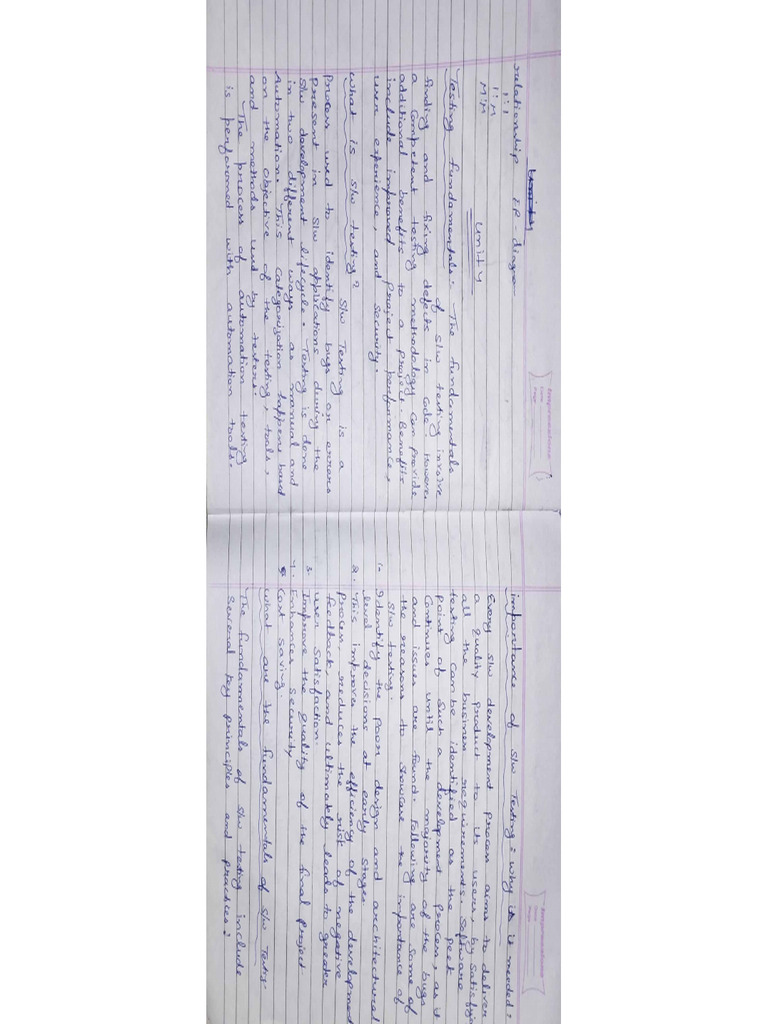 relationship ER - diagram
1:1
1:M
M:M
Unit 4
Testing fundamentals: The fundamentals
of S/w testing involve
finding and fixing defects in code. However
a competent testing methodology can provide
additional benefits to a project. Benefits
include improved project performance,
user experience, and security.
What is S/w testing? S/w Testing is a
Process used to identify bugs or errors
present in S/w applications during the
S/w development lifecycle. Testing is done
in two different ways as manual and
Automation. This Categorization happens based
on the objective of the testing, tools,
and methods used by testers.
The process of automation testing
is performed with automation tools.
importance of S/w Testing: why is it needed?
Every S/w development process aims to deliver
a quality product to its users, by satisfying
all the business requirements. Software
testing can be identified as the peet
point of such a development process, as it
Continues until the majority of the bugs
and issues are found. Following are some of
the reasons to showcase the importance of
S/w testing.
1. Identify the Poor design and architectural
level decisions at early stages.
2. This improves the efficiency of the development
Process, reduces the risk of negative
feedback, and ultimately leads to greater
user satisfaction.
3. Improve the quality of the final project.
4. Enhances security
5. Cost Saving.
what are the fundamentals of S/w Testing.
The fundamentals of S/w testing include
Several key principles and practices: